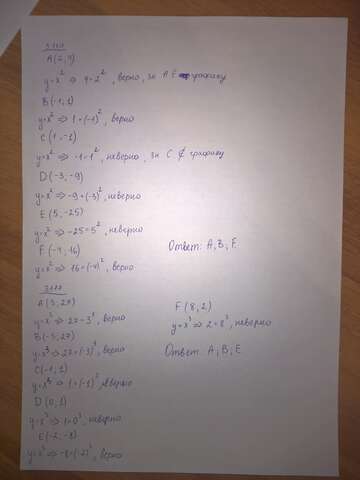 A(2,4)
y=x² => 4=2², верно, зн A ∈ графику
B(-1;1)
y=x² => 1=(-1)², верно
C(1,-1)
y=x² => -1=1², неверно, зн C ∉ графику
D(-3,-9)
y=x² => -9=(-3)², неверно
E(5,-25)
y=x² => -25=5², неверно
F(-4,16)
y=x² => 16=(-4)², верно
Ответ: A, B, F.
A(3,27)
y=x³ => 27=3³, верно
B(-3;27)
y=x³ => 27=(-3)³, верно
C(-1,1)
y=x³ => 1=(-1)³, неверно
D(0,1)
y=x³ => 1=0³, неверно
E(-2,-8)
y=x³ => -8=(-2)³, верно
F(8,2)
y=x³ => 2=8³, неверно
Ответ: A; B; E